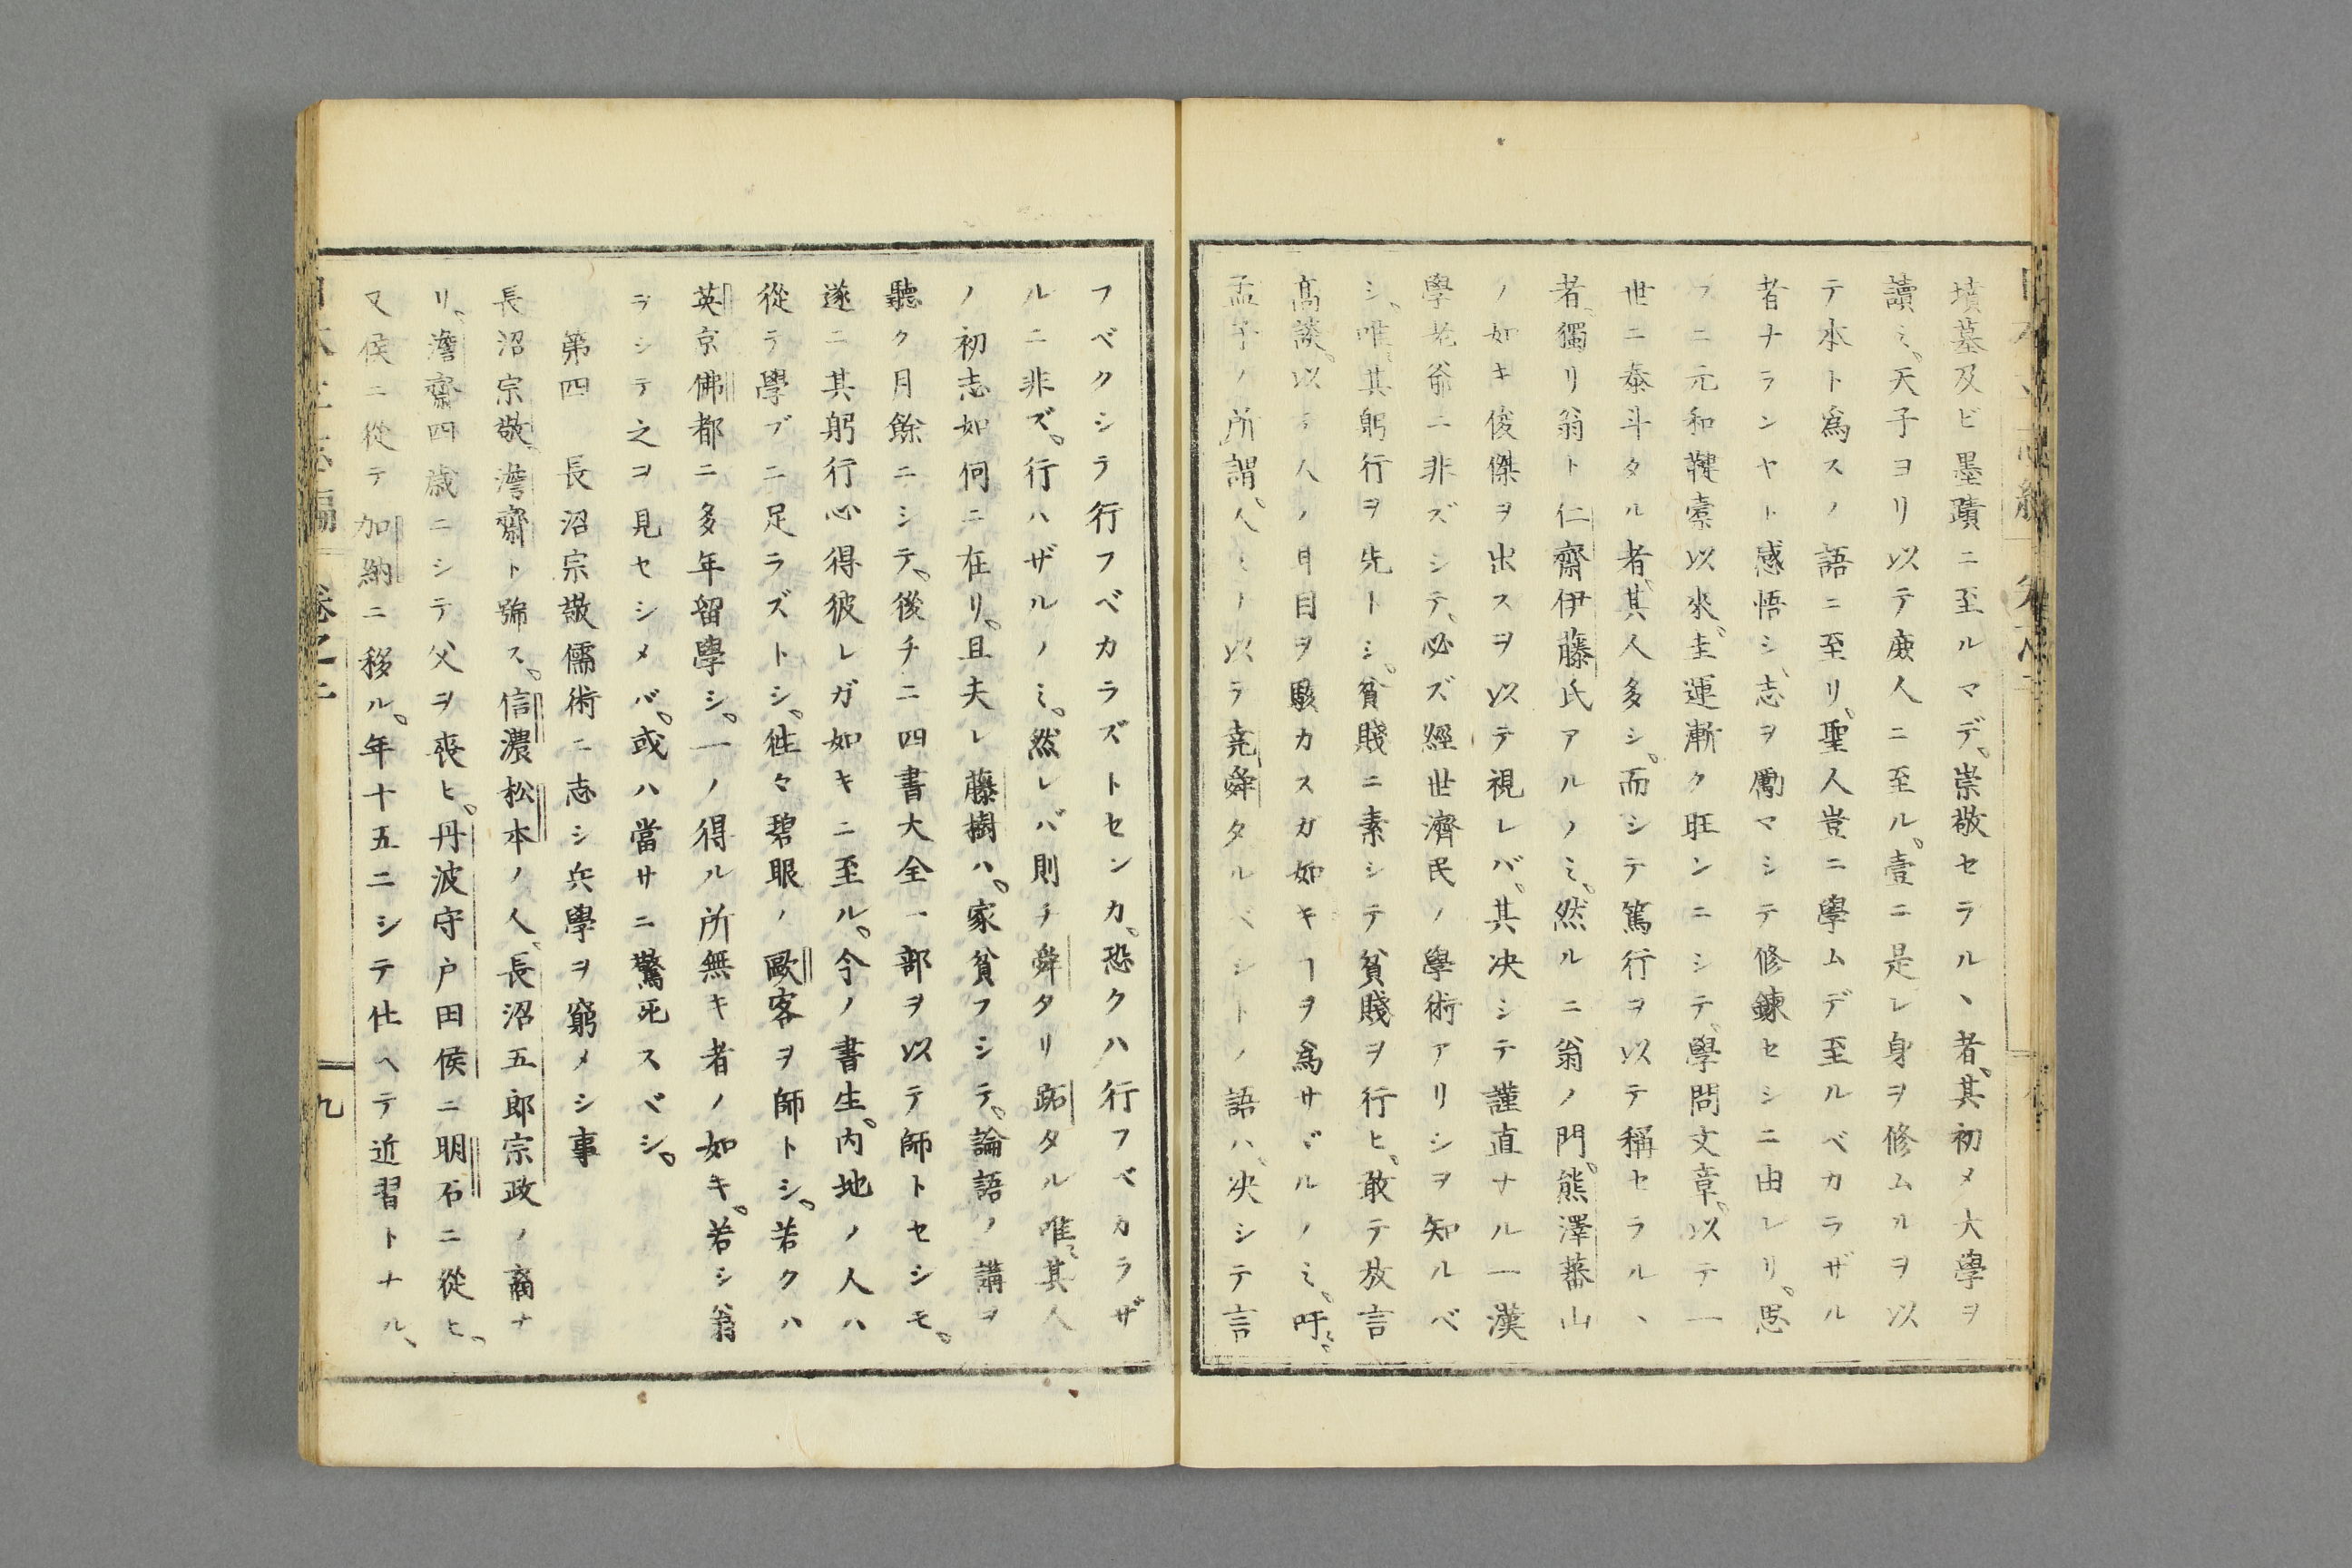 墳墓及ビ墨蹟ニ至ルマデ。崇敬セラルヽ者、其初メ大學ヲ
讀ミ。天子ヨリ以テ庶人ニ至ル。壹ニ是レ身ヲ修ムルヲ以
テ本ト爲スノ語ニ至リ。聖人豈ニ學ムデ至ルベカラザル
者ナランヤト感悟シ、志ヲ勵マシテ修鍊セシニ由レリ。思
フニ元和鞬櫜以來。奎運漸ク旺ンニシテ、學問文章。以テ一
世ニ泰斗タル者、其人多シ。而シテ篤行ヲ以テ稱セラルヽ
者。獨リ翁ト仁齋伊藤氏アルノミ。然ルニ翁ノ門。熊澤蕃山
ノ如キ俊傑ヲ出スヲ以テ視レバ、其决シテ謹直ナル一漢
學老爺ニ非ズシテ、必ズ經世濟民ノ學術アリシヲ知ルベ
シ、唯〻其躬行ヲ先トシ。貧賤ニ素シテ貧賤ヲ行ヒ。敢テ放言
髙談。以テ人ノ耳目ヲ駭カスガ如キヿヲ爲サヾルノミ。吁〻。
孟子ノ所謂。人〻以テ堯舜タルベシトノ語ハ、决シテ言
フベクシテ行フベカラズトセンカ。恐クハ行フベカラザ
ルニ非ズ。行ハザルノミ。然レバ則チ舜タリ跖タル唯〻其人
ノ初志如何ニ在リ。且夫レ藤樹ハ。家貧フシテ。論語ノ講ヲ
聽ク月餘ニシテ。後チニ四書大全一部ヲ以テ師トセシモ。
遂ニ其躬行心得彼レガ如キニ至ル。今ノ書生。内地ノ人ハ
從テ學ブニ足ラズトシ。徃々碧眼ノ歐客ヲ師トシ。若クハ
英京佛都ニ多年留學シ。一ノ得ル所無キ者ノ如キ。若シ翁
ヲシテ之ヲ見セシメバ。或ハ當サニ驚死スベシ。
第四 長沼宗敬儒術ニ志シ兵學ヲ窮メシ事
長沼宗敬。澹齋ト號ス。信濃松本ノ人、長沼五郎宗政ノ裔ナ
リ。澹齋四歳ニシテ父ヲ喪ヒ。丹波守戸田侯ニ明石ニ從ヒ。
又侯ニ從テ加納ニ移ル。年十五ニシテ仕ヘテ近習トナル、
卷之二
九